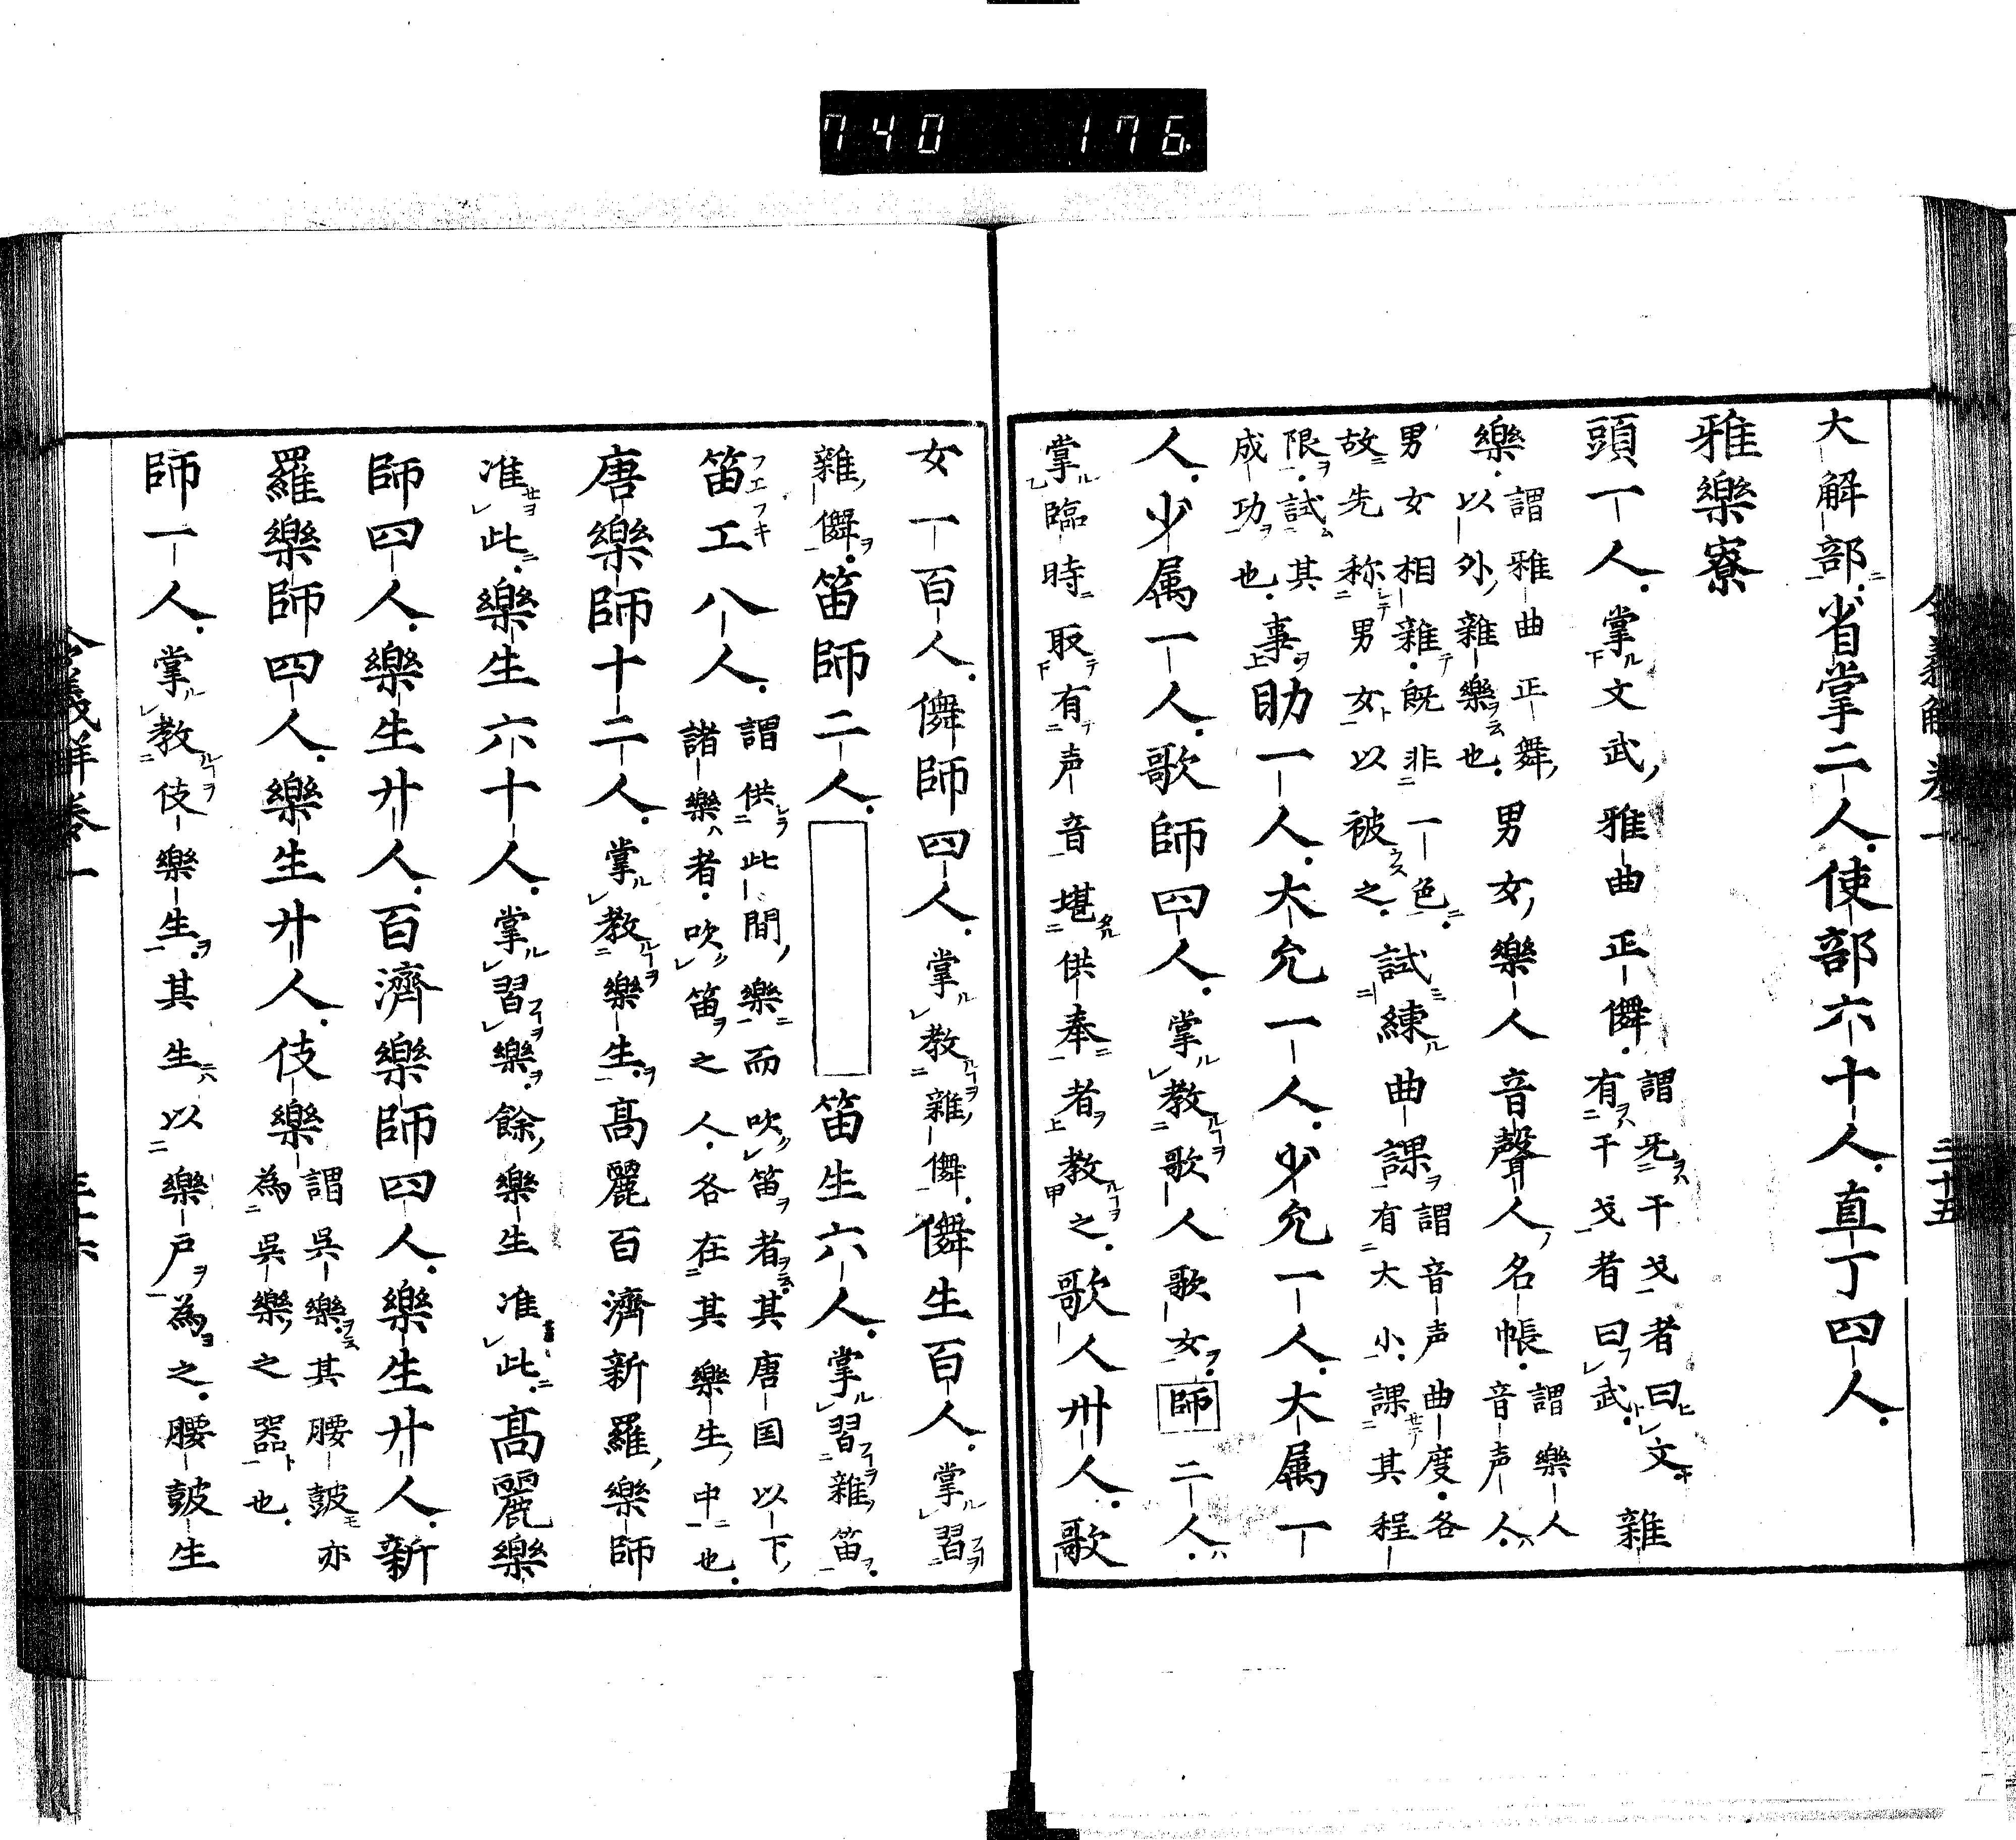 740 176
大解部。省掌二人。使部六十人。直丁四人。
雅樂寮
頭一人。掌文武雅曲正儛。謂。牙干戈者曰文。有干戈者曰武。雜
樂。謂雅曲正舞。以外雜樂也。男女樂人音聲人名帳。謂樂人音声人。
男女相雜。既非一色。故先称男女以被之。試練曲課。謂音声曲度。各有大小。課其程
限。試其成功也。事。助一人。大允一人。少允一人。大属一
人。少属一人。歌師四人。掌教歌人歌女。師二人。
掌臨時取有声音堪供奉者教之。歌人卅人。歌
女一百人。儛師四人。掌教雜儛。儛生百人。掌習
雜儛。笛師二人。笛生六人。掌習雜笛。
笛工八人。謂供此間樂而吹笛者。其唐国以下諸樂者。吹笛之人。各在其樂生中也。
唐樂師十二人。掌教樂生。高麗百濟新羅樂師
准此。樂生六十人。掌習樂。餘樂生准此。高麗樂
師四人。樂生廿人。百濟樂師四人。樂生廿人。新
羅樂師四人。樂生廿人。伎樂謂吳樂。其腰皷亦為吳樂之器也。
師一人。掌教伎樂生。其生以樂戸為之。腰皷生